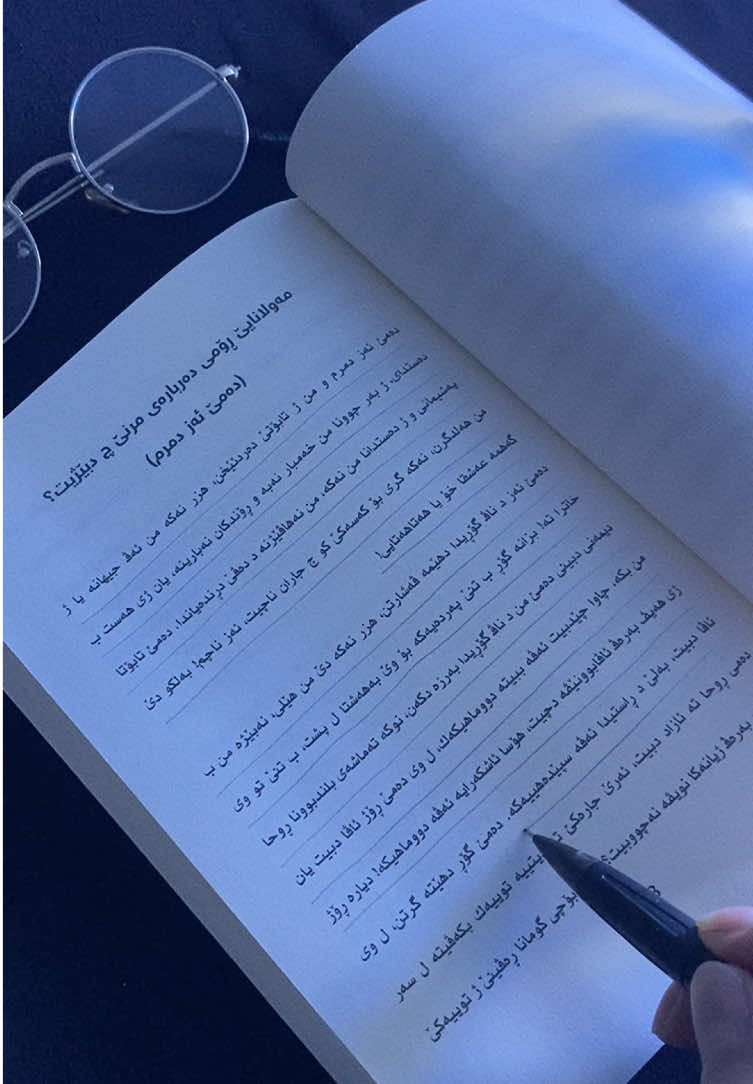 مەولانایێ ڕۆمی دەربارەی مرنێ چ دبێژیت؟
(دەمێ ئەز دمرم)
دەمێ ئەز دمرم و من ژ تابۆتێ دەردئێخن، هزر نەکە من ئەڤ جیهانە یا ژ
دەستدای، ژ بەر چوونا من خەمبار نەبە و ڕۆندکان نەبارینە، یان ژی هەست ب
پەشیمانی و ژ دەستدانا من نەکە، من نەهاڤێژنە د دەڤی درندەیاندا، دەمێ تابۆتا
من هەلدگرن، نەکە گری بۆ کەسەکێ کو چ جاران ناچیت، ئەز ناچم! بەلکو دێ
گەهمە عەشقا خۆ یا هەتاهەتایی!
دەمێ ئەز د ناڤ گۆڕیدا دهێمە ڤەشارتن، هزر نەکە دێ من هێلی، نەبێژە من ب
خاترا تە! بزانە گۆڕ ب تنێ پەردەیەکە بۆ وێ بەهەشتا ل پشت، ب تنێ تو وی
دیمەنی دبینی دەمێ من د ناڤ گۆڕیدا بەرزە دکەن، نوکە تەماشەی بلندبوونا ڕوحا
من بکە، چاوا چێدبیت ئەڤە ببیتە دووماهیکەک، ل وی دەمێ ڕۆژ ئاڤا دبیت یان
ژی هەیڤ بەرەڤ ئاڤابوونێڤە دچیت، هۆسا ئاشکەرایە ئەڤە دووماهیکە! دیارە ڕۆژ
ئاڤا دبیت، بەلێ د ڕاستیدا ئەڤە سپێدەهییەکە. دەمێ گۆڕ دهێتە گرتن، ل وی
دەمی ڕوحا تە ئازاد دبیت، ئەرێ جارەکێ تە دیتیە تویەک بکەڤیتە ل سەر
بەرەڤ ژیانەکا نویڤە نەچووبیت؟ بۆچی گومانا ڕەڤینێ ژ تویەکێ